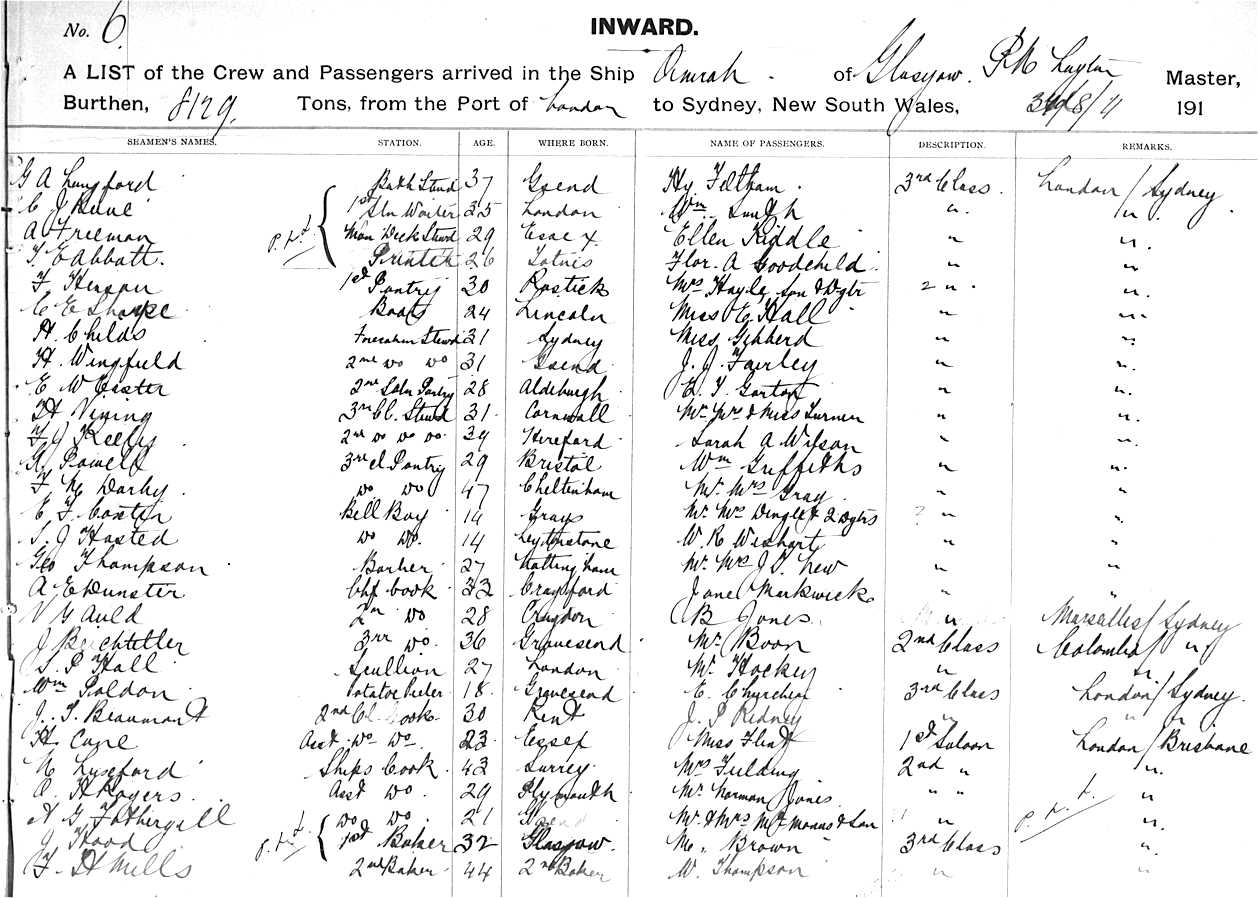 No. 6 INWARD.
A LIST of the Crew and Passengers arrived in the Ship Omrah. of Glasgow. Master,
Burthen, 8129. Tons, from the Port of London to Sydney, New South Wales, 191
SEAMEN'S NAMES. STATION. AGE. WHERE BORN. NAME OF PASSENGERS. DESCRIPTION. REMARKS.
G A Langford Bath Stwd 37 Gsend Hy Feltham. 3rd Class. London / Sydney
C J 1st Sln Waiter London Wm Smith " "
A Freeman Deck Stwd 29 Essex Ellen Kiddle " "
Abbott. Printer 26 Totnes Flor. A Goodchild " "
F 1st Pantry 30 Mrs Hayle, Son & Dgtr " "
C E Sharpe Boots 24 Lincoln Miss E Hall " "
H. Childs Stwd 31 Sydney Miss Gibberd " "
H. Wingfield 2nd do do 31 Gsend J. J. Fairley " "
E W 2nd Saln Pantry 28 Aldeburgh E. T. Gorton " "
Vining 3rd Cl. Stwd 31 Cornwall Mr. Mrs & Miss Turner " "
J 2nd do do do. 39 Hereford Sarah A Wilson " "
Powell 3rd Cl Pantry 29 Bristol Wm Griffiths " "
F Darby do do 47 Cheltenham Mr. Mrs Gray " "
C F Bell Boy 14 Grays Mr. Mrs Dingle & 2 Dgtrs " "
J Hasted do do. 14 Leytonstone W. R Wishart " "
Geo Thompson Barber 27 Nottingham Mr. Mrs New " "
A E Dunster Chf Cook 32 Crayford Jane Markwick " "
V G Auld 2nd do 28 Croydon B Jones " Marsailles / Sydney
J 3rd do. 36 Gravesend Mr. Boon 2nd Class Colombo / "
Hall Scullion 27 London Mr. Hockey " "
Wm Potatoe Peeler 18. Gravesend E. 3rd Class London / Sydney.
J. Beaumont 2nd Cl. Cook. 30 Kent J. P Ridney " " "
H. Cane Asst do do 23 Essex Miss Flint 1st Saloon London / Brisbane
Ships Cook. 43 Surrey Mrs Fielding 2nd " "
Rogers. Asst do. 29 Plymouth Mr Norman Jones " " "
G Fothergill do do. 21 Mr. & Mrs & Son " "
J Hood 1st Baker 32 Glasgow. Brown 3rd Class "
F. H Mills 2nd Baker 44 2nd Baker W. Thompson " "